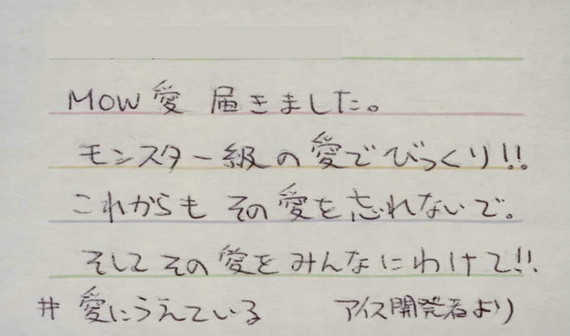 MOW 愛 届きました。
モンスター級の愛でびっくり!!
これからも その愛を忘れないで。
そして その愛を みんなに わけて!!
# 愛にうえている アイス開発者より